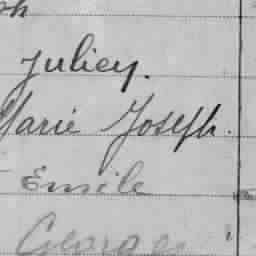 ph
Juliey.
Marie Joseph.
Emile
Georges